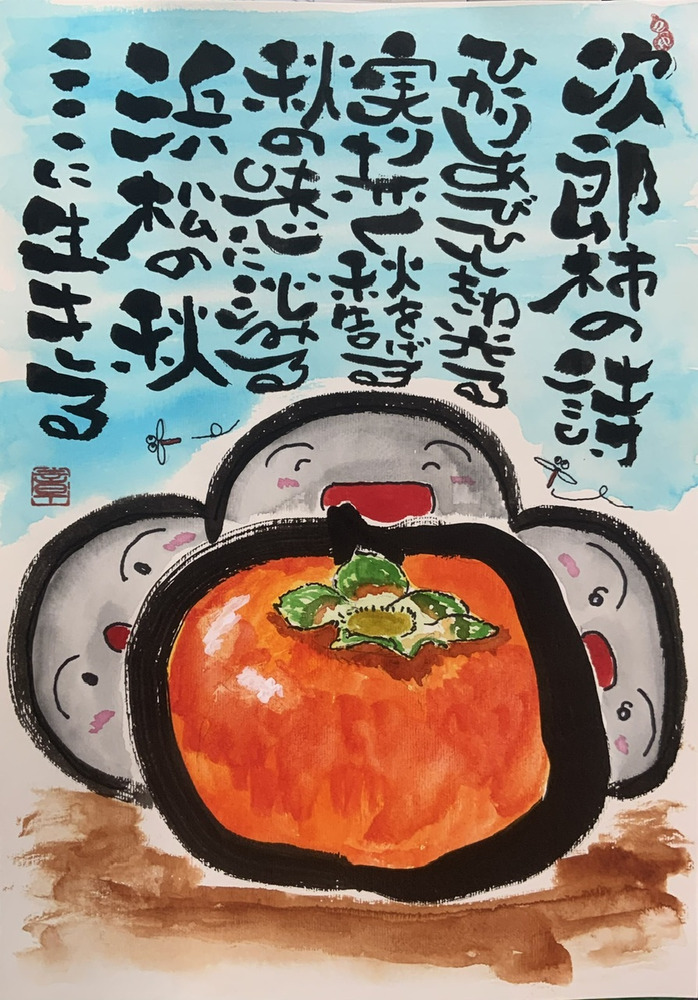 次郎柿の詩
ひかりあびひときわ光る
実り招く秋を告げる
秋の味心に沁みる
浜松の秋
ここに生きる